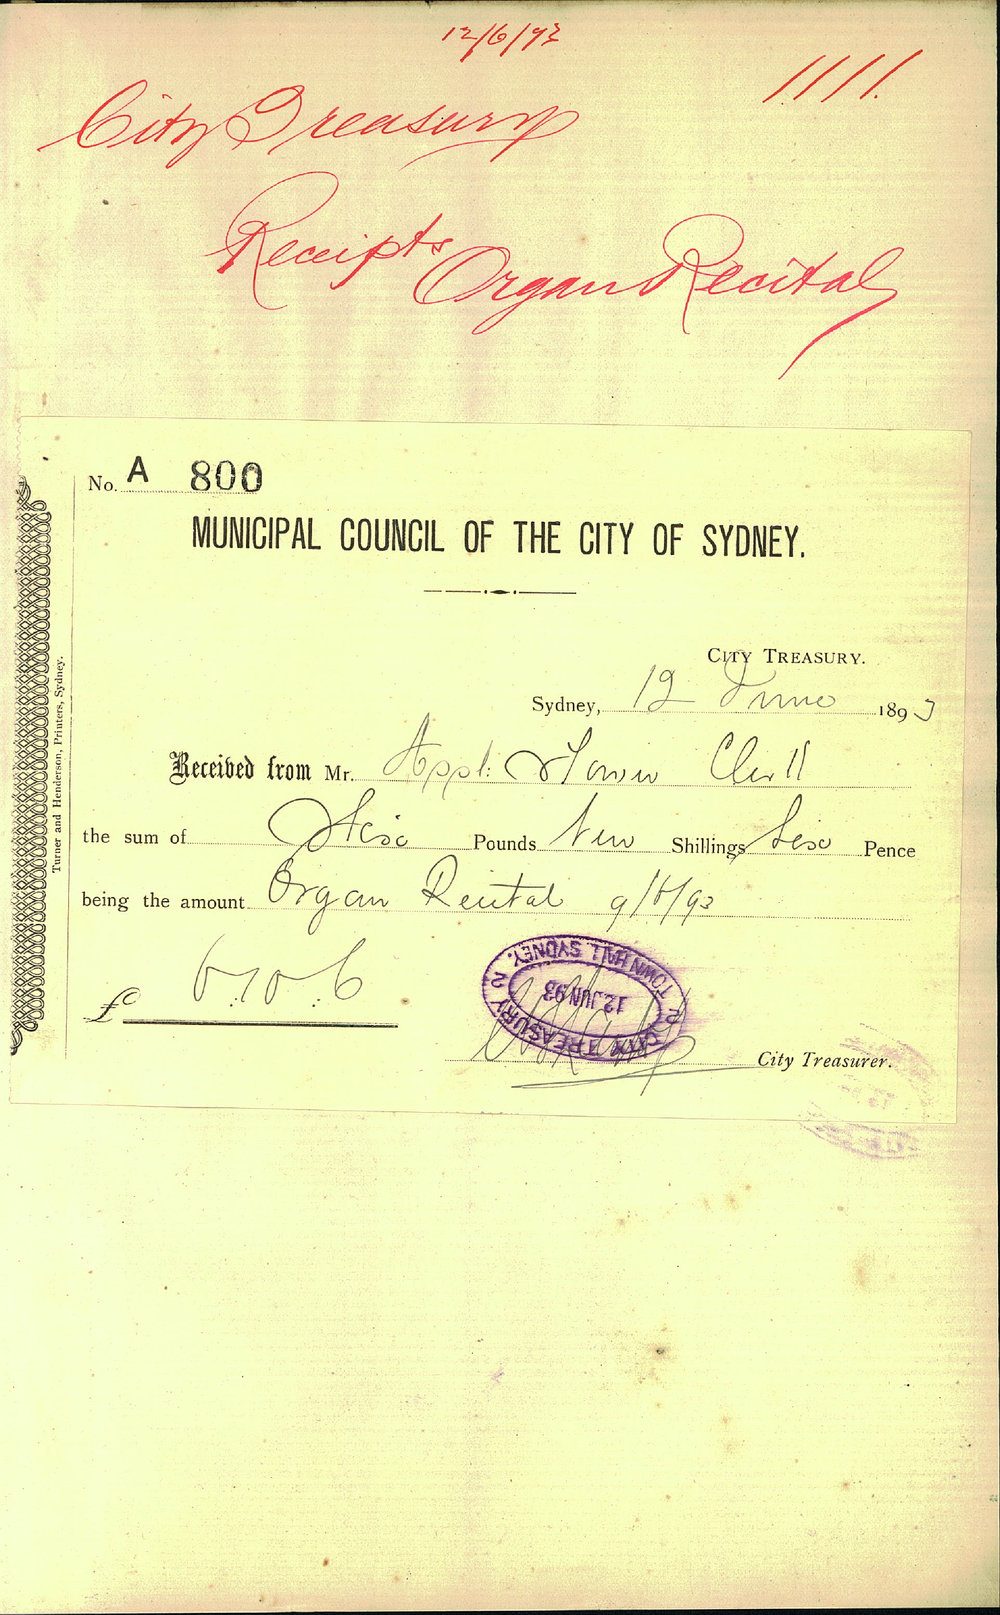 12/6/93
1111.
City Treasury
Receipts Organ Recital
No. A 800
MUNICIPAL COUNCIL OF THE CITY OF SYDNEY.
CITY TREASURY.
Sydney, 12 June 1893
Received from Mr. Town Clerk
the sum of Six Pounds Ten Shillings Six Pence
being the amount Organ Recital 9/6/93
£ 6.10.6
CITY TREASURY
12 JUN 93
TOWN HALL SYDNEY.
City Treasurer.
Turner and Henderson, Printers, Sydney.